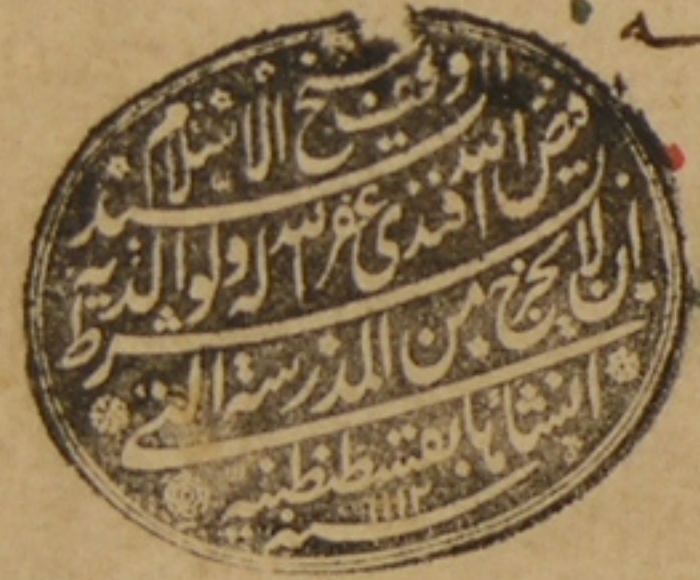 وقف شيخ الاسلام
السيد فيض الله افندى غفر الله له ولوالديه
بشرط ان لا يخرج من المدرسة التى
انشأها بقسطنطنيه
سنه ١١١٢